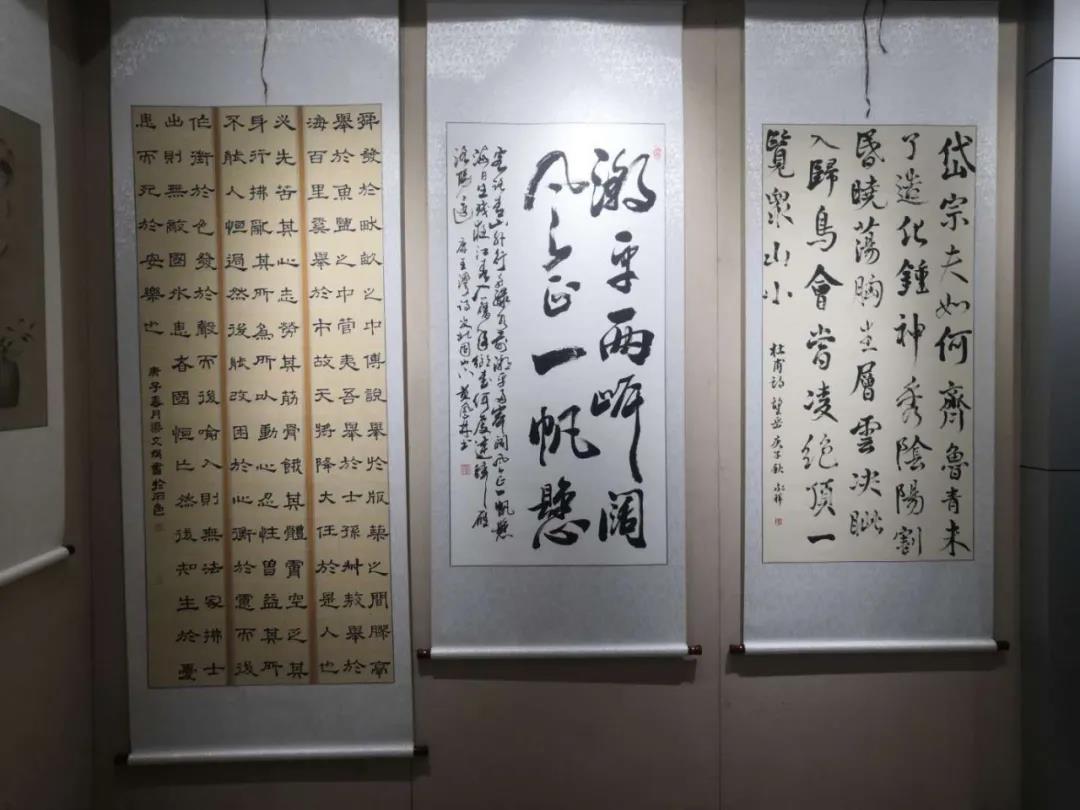 岱宗夫如何齊魯青未
了造化鍾神秀陰陽割
昏曉蕩胸生層雲決眦
入歸鳥會當凌絕頂一
覽眾山小
杜甫詩望岳庚子秋
潮平兩岸闊
風正一帆懸
客路青山外行舟綠水前潮平兩岸闊風正一帆懸
海日生殘夜江春入舊年鄉書何處達歸雁
洛陽邊 唐王灣詩次北固山下
舜發於畎畝之中傅說舉於版築之間膠鬲
舉於魚鹽之中管夷吾舉於士孫叔敖舉於
海百里奚舉於市故天將降大任於是人也
必先苦其心志勞其筋骨餓其體膚空乏其
身行拂亂其所為所以動心忍性曾益其所
不能人恒過然後能改困於心衡於慮而後
作徵於色發於聲而後喻入則無法家拂士
出則無敵國外患者國恒亡然後知生於憂
患而死於安樂也
庚子春月梁文書於石邑